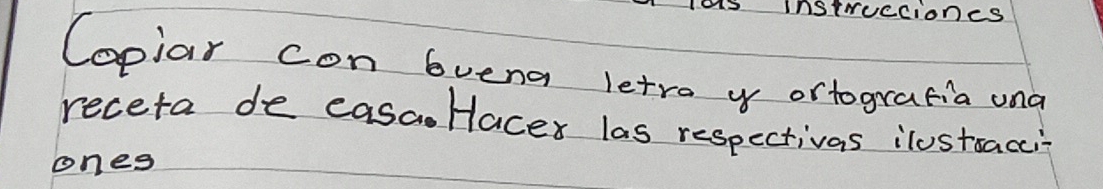 las instrucciones
Copiar con buena letra y ortografía una
receta de casa. Hacer las respectivas ilustracci-
ones